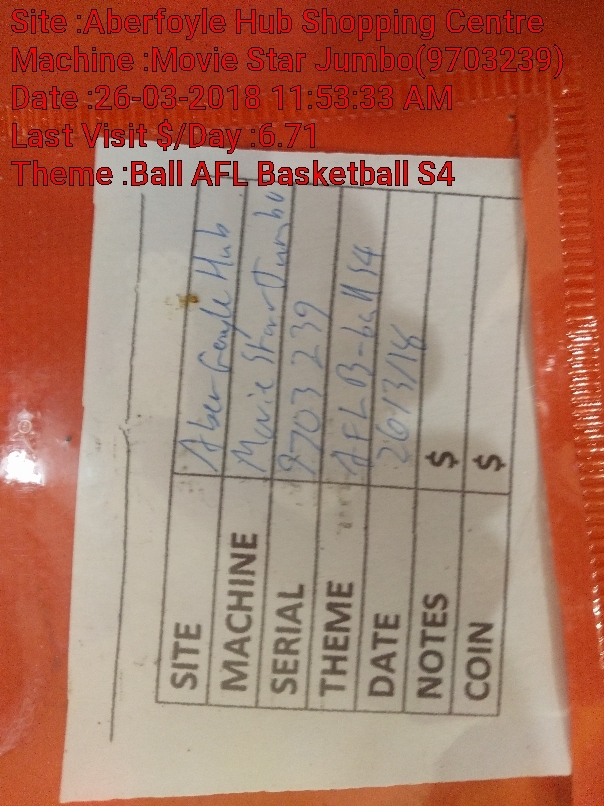 Site :Aberfoyle Hub Shopping Centre
Machine :Movie Star Jumbo(9703239)
Date :26-03-2018 11:53:33 AM
Last Visit $/Day :6.71
Theme :Ball AFL Basketball S4
SITE Aberfoyle Hub
MACHINE Movie Star Jumbo
SERIAL 9703239
THEME AFL B-ball S4
DATE 26/3/18
NOTES $
COIN $